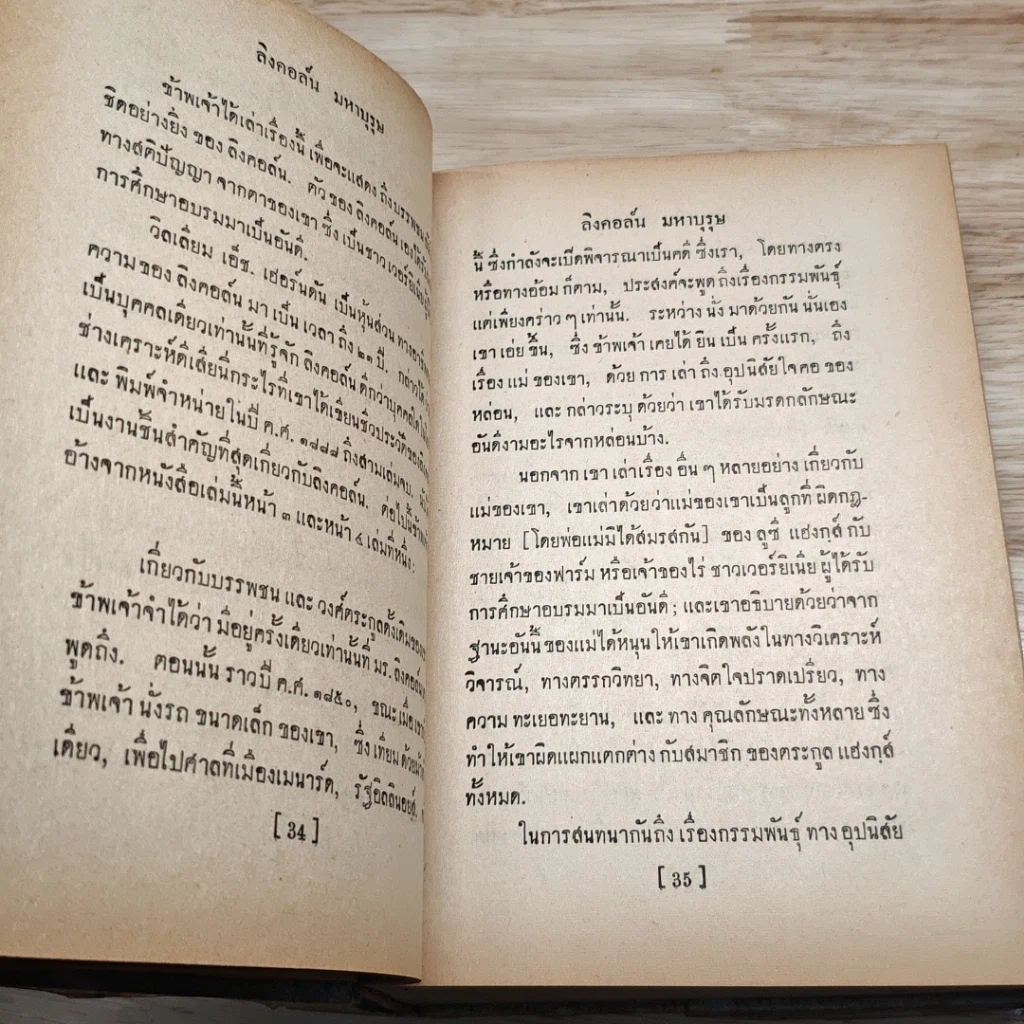 ลิงคอล์น มหาบุรุษ
ข้าพเจ้าได้เล่าเรื่องนี้ เพื่อจะแสดง ถึงบรรพชน
ชิดอย่างยิ่ง ของ ลิงคอล์น. ตัว ของ ลิงคอล์น เอง
ทางสติปัญญา จากตาของเขา ซึ่ง เป็นชาว เวอร์ยิเนีย
การศึกษาอบรมมาเป็นอันดี.
วิลเลียม เอ็ช. เฮอร์นดัน เป็นหุ้นส่วน ทาง
ความ ของ ลิงคอล์น มา เป็น เวลา ถึง ๒๑ ปี, กล่าว
เป็นบุคคลเดียวเท่านั้นที่รู้จัก ลิงคอล์น ดีกว่าบุคคลใด
ช่างเคราะห์ดีเสียนี่กระไรที่เขาได้เขียนชีวประวัติของ
และ พิมพ์จำหน่ายในปี ค.ศ. ๑๘๘๘ ถึงสามเล่มจบ.
เป็นงานชิ้นสำคัญที่สุดเกี่ยวกับลิงคอล์น. ต่อไปนี้
อ้างจากหนังสือเล่มนี้หน้า ๓ และหน้า ๔ เล่มที่หนึ่ง:
เกี่ยวกับบรรพชน และ วงศ์ตระกูลดั้งเดิมของ
ข้าพเจ้าจำได้ว่า มีอยู่ครั้งเดียวเท่านั้นที่ มร. ลิงคอล์น
พูดถึง. ตอนนั้น ราวปี ค.ศ. ๑๘๕๐, ขณะเมื่อ
ข้าพเจ้า นั่งรถ ขนาดเล็ก ของเขา, ซึ่ง เทียม ด้วย
เดียว, เพื่อไปศาลที่เมืองเมนาร์ด, รัฐอิลลินอยส์,
[ 34 ]
ลิงคอล์น มหาบุรุษ
นี้ ซึ่งกำลังจะเปิดพิจารณาเป็นคดี ซึ่งเรา, โดยทางตรง
หรือทางอ้อม ก็ตาม, ประสงค์จะพูด ถึงเรื่องกรรมพันธุ์
แต่เพียงคร่าว ๆ เท่านั้น. ระหว่าง นั่ง มาด้วยกัน นั่นเอง
เขา เอ่ย ขึ้น, ซึ่ง ข้าพเจ้า เคยได้ ยิน เป็น ครั้งแรก, ถึง
เรื่อง แม่ ของเขา, ด้วย การ เล่า ถึง อุปนิสัยใจคอ ของ
หล่อน, และ กล่าวระบุ ด้วยว่า เขาได้รับมรดกลักษณะ
อันดีงามอะไรจากหล่อนบ้าง.
นอกจาก เขา เล่าเรื่อง อื่น ๆ หลายอย่าง เกี่ยวกับ
แม่ของเขา, เขาเล่าด้วยว่าแม่ของเขาเป็นลูกที่ ผิดกฎ-
หมาย [โดยพ่อแม่มิได้สมรสกัน] ของ ลูซี แฮงกส์ กับ
ชายเจ้าของฟาร์ม หรือเจ้าของไร่ ชาวเวอร์ยิเนีย ผู้ได้รับ
การศึกษาอบรมมาเป็นอันดี ; และเขาอธิบายด้วยว่าจาก
ฐานะอันนี้ ของแม่ได้หนุนให้เขาเกิดพลัง ในทางวิเคราะห์
วิจารณ์, ทางตรรกวิทยา, ทางจิตใจปราดเปรียว, ทาง
ความ ทะเยอทะยาน, และ ทาง คุณลักษณะทั้งหลาย ซึ่ง
ทำให้เขาผิดแผกแตกต่าง กับสมาชิก ของตระกูล แฮงกส์
ทั้งหมด.
ในการสนทนากันถึง เรื่องกรรมพันธุ์ ทาง อุปนิสัย
[ 35 ]